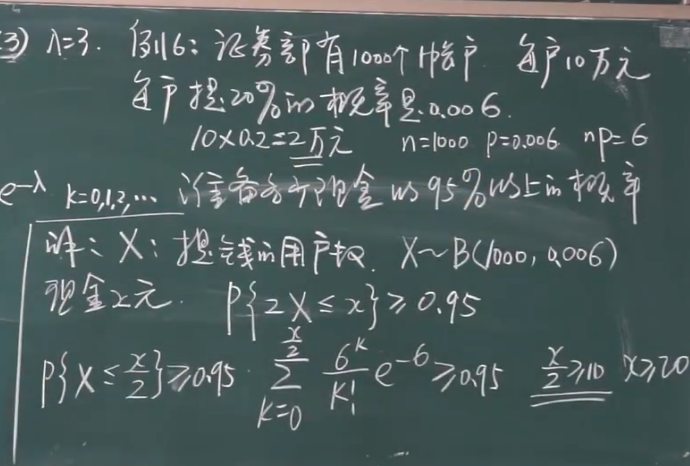 3) λ=3. 例16: 证券部有1000个帐户 每户10万元
每户提20%的概率是0.006.
10×0.2=2万元 n=1000 p=0.006 np=6
e^{-λ} k=0,1,2,… 准备多少现金 以95%以上的概率
解: X: 提钱的用户数. X~B(1000, 0.006)
现金x元. P{2X≤x}≥0.95
P{X≤\frac{x}{2}}≥0.95. \sum_{K=0}^{\frac{x}{2}} \frac{6^K}{K!} e^{-6}≥0.95 \frac{x}{2}≥10 x≥20